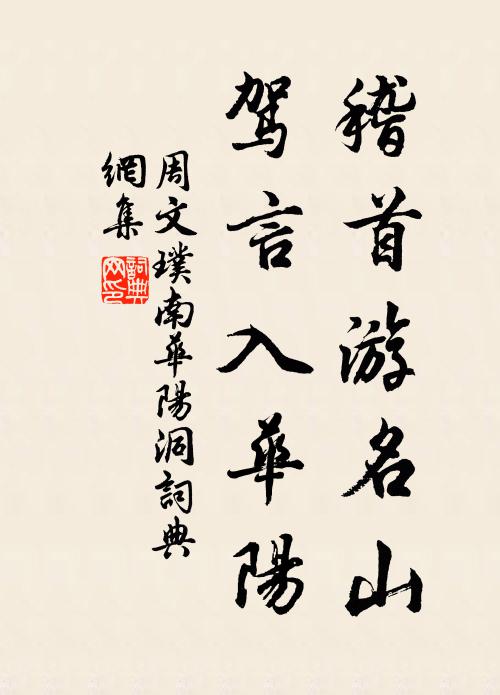 稽首游名山
驾言入華陽
周文璞南華陽洞詞典
網集
詞典網印